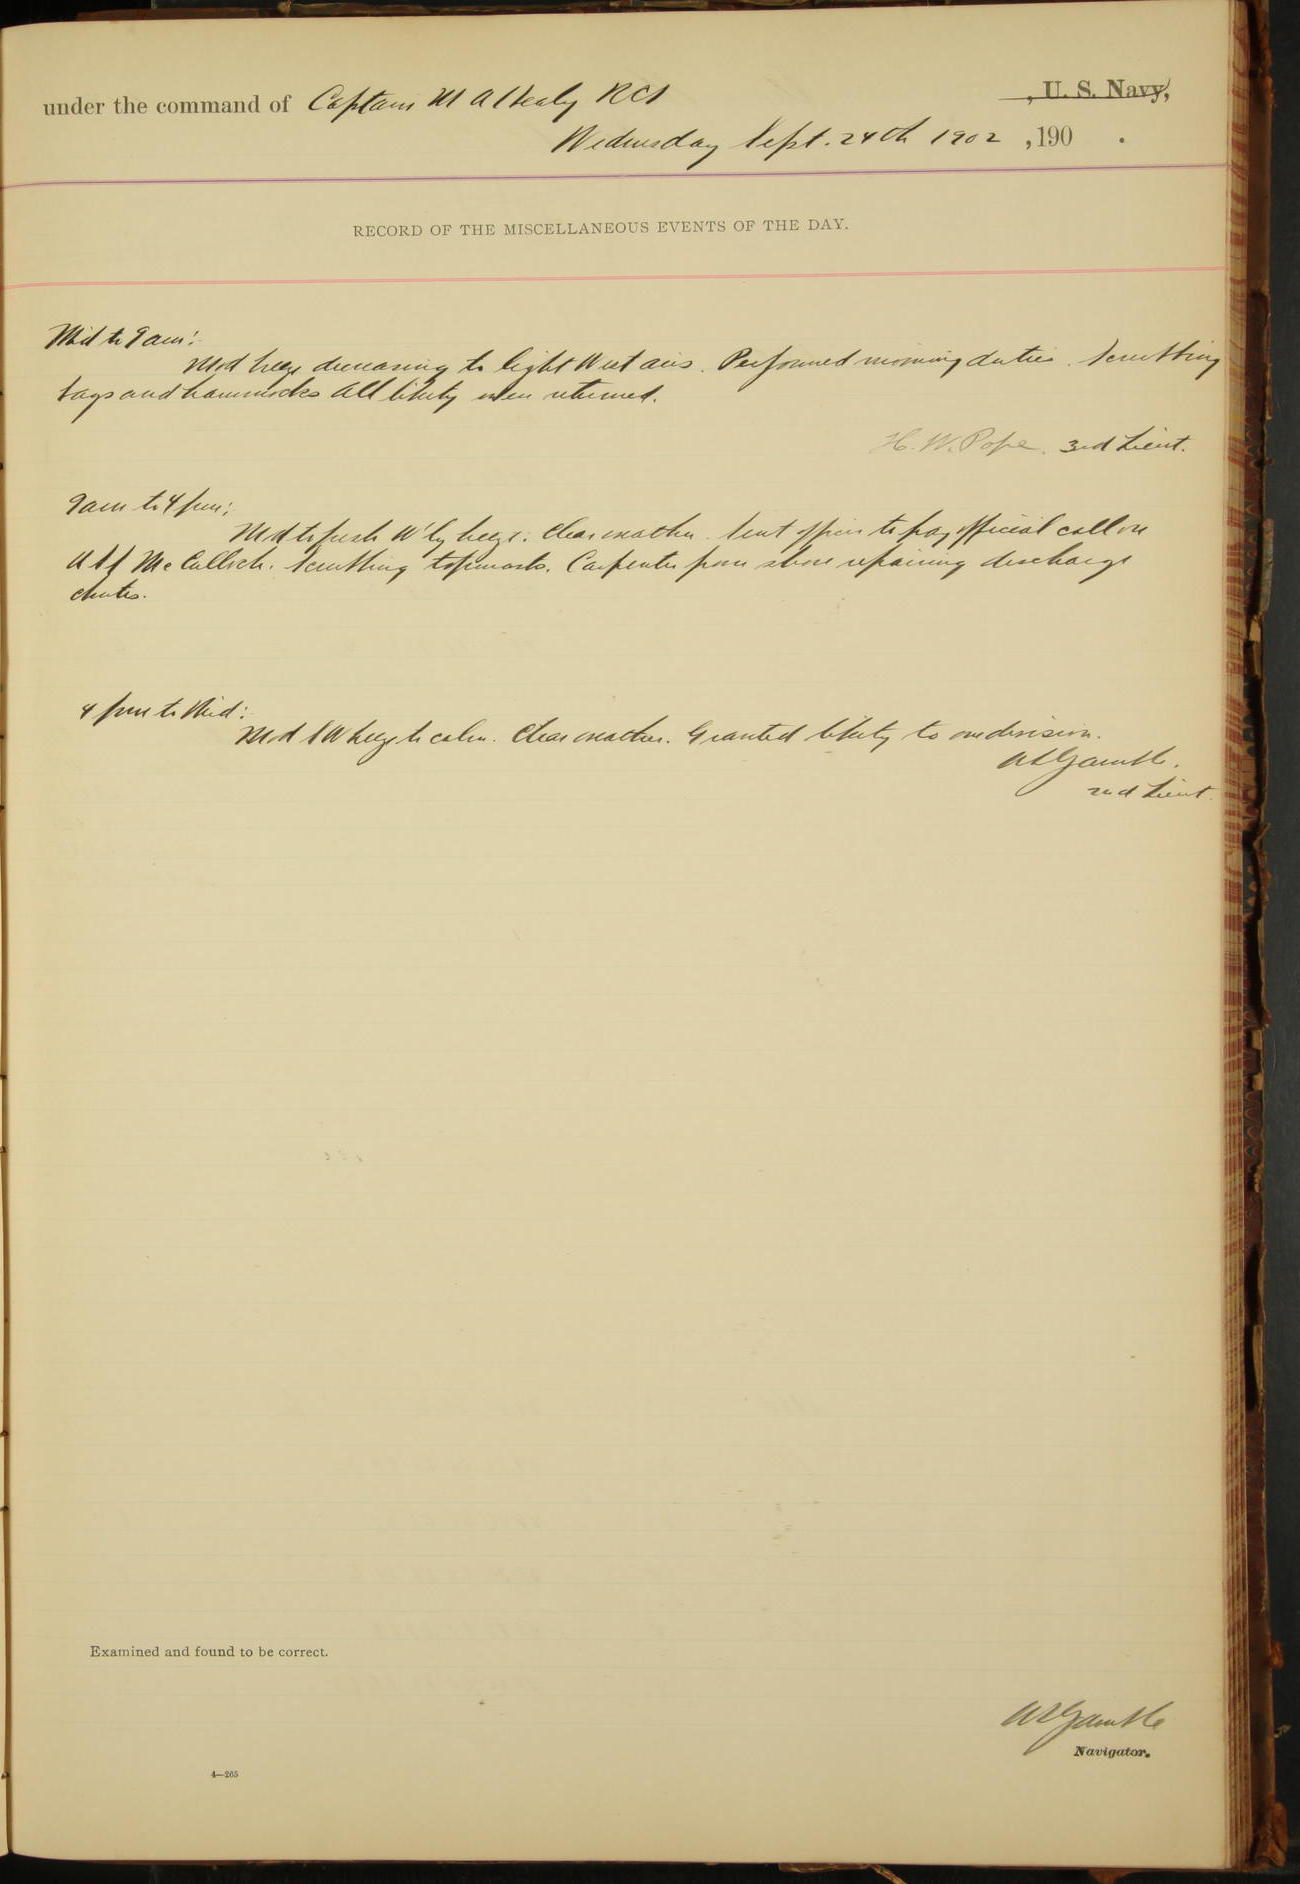 under the command of Captain M A Healy RCS , U. S. Navy,
Wednesday Sept. 24th 1902 , 190 .
RECORD OF THE MISCELLANEOUS EVENTS OF THE DAY.
Mid to 9 am:
Mod breeze decreasing to light West airs. Performed morning duties. Scrubbing
bags and hammocks All liberty men returned.
H. W. Pope. 3rd Lieut.
9 am to 4 pm:
Mod to fresh W'ly breeze. Clear weather. Sent officer to pay official call on
McCulloch. Scrubbing topmasts. Carpenter from shore repairing discharge
chutes.
4 pm to Mid:
Mod SW breeze to calm. Clear weather. Granted liberty to one division.
Gamble.
2nd Lieut.
Examined and found to be correct.
Gamble
Navigator.
4—265